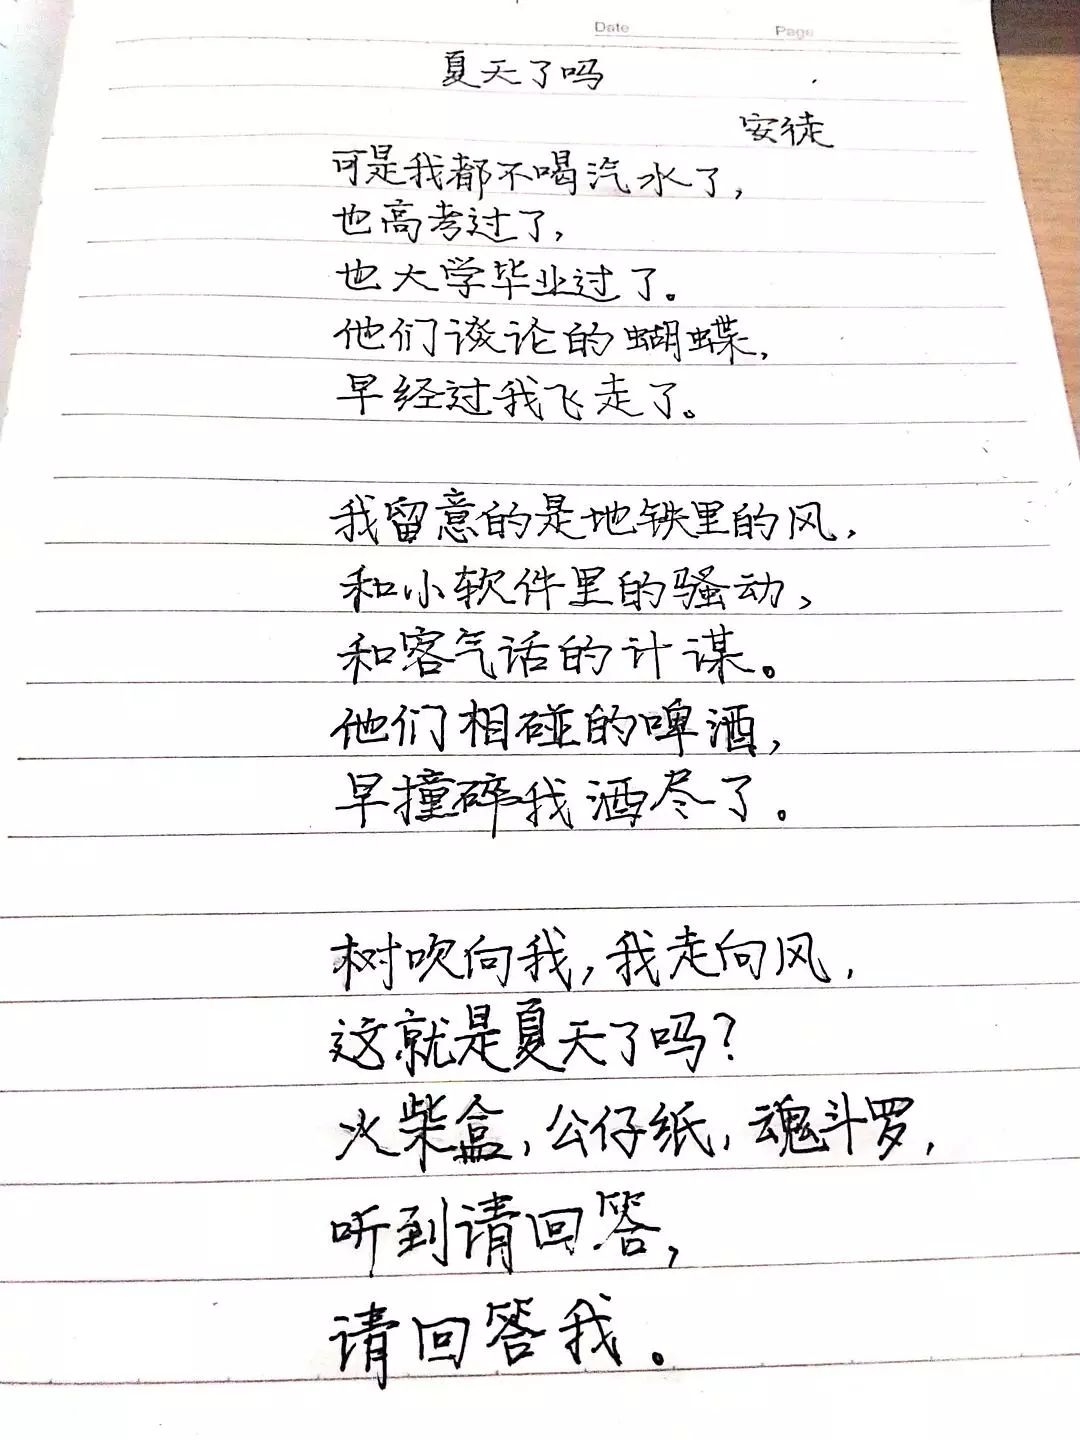 Date Page
夏天了吗
安徒
可是我都不喝汽水了，
也高考过了，
也大学毕业过了。
他们谈论的蝴蝶，
早经过我飞走了。
我留意的是地铁里的风，
和小软件里的骚动，
和客气话的计谋。
他们相碰的啤酒，
早撞碎我洒尽了。
树吹向我，我走向风，
这就是夏天了吗？
火柴盒，公仔纸，魂斗罗，
听到请回答，
请回答我。